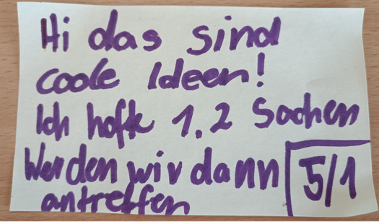 Hi das sind
coole Ideen!
Ich hoffe 1,2 Sachen
Werden wir dann 5/1
antreffen